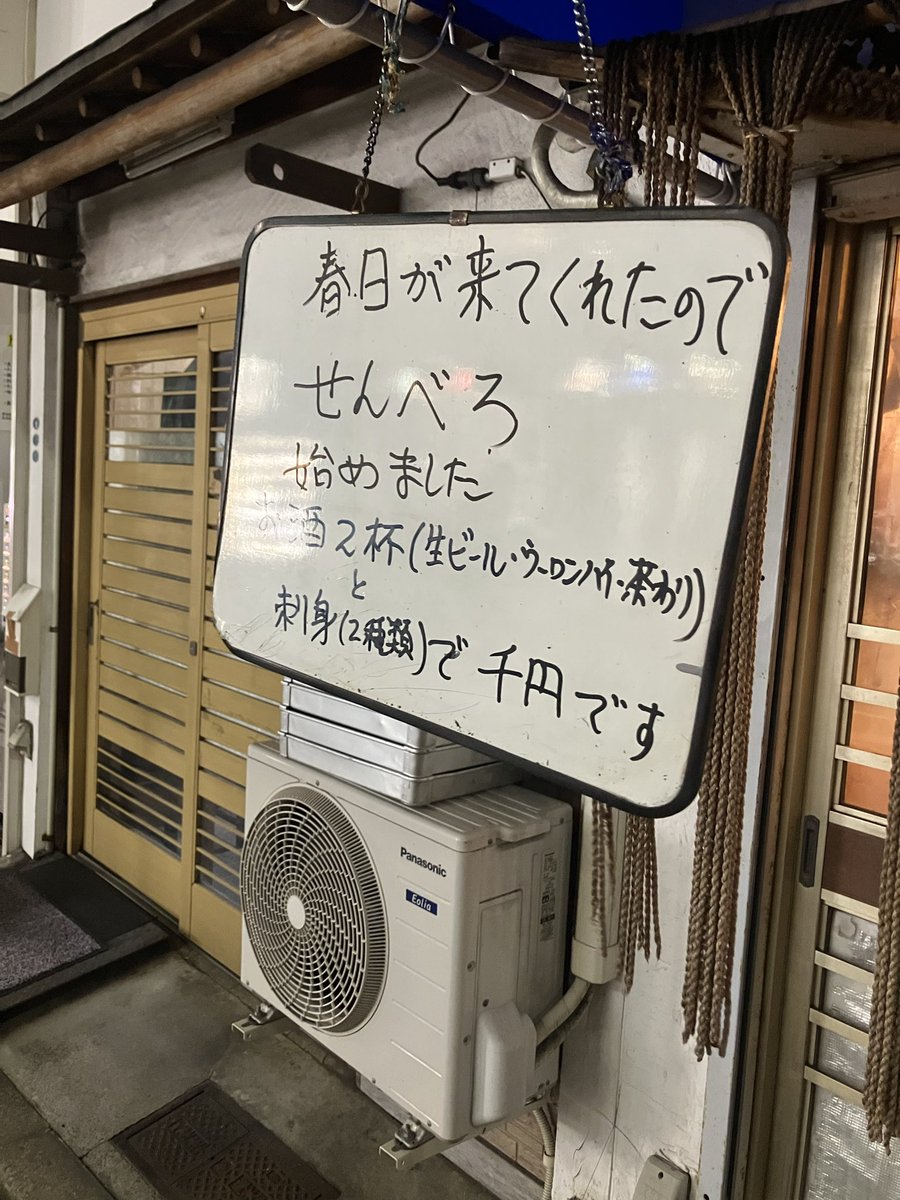 春日が来てくれたので
せんべろ
始めました
お酒2杯(生ビール・ウーロンハイ・茶わり)
と
刺身(2種類)で 千円です
Panasonic
Eolia